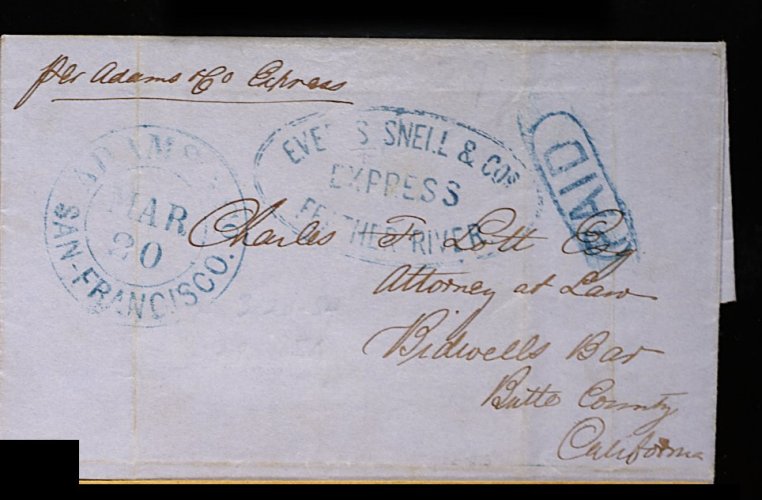 per Adams & Co Express
ADAMS &
MAR
20
SAN-FRANCISCO.
EVERTS, SNELL & COS
EXPRESS
FEATHER RIVER
PAID
Charles F. Lott Esq
Attorney at Law
Bidwells Bar
Butte County
California